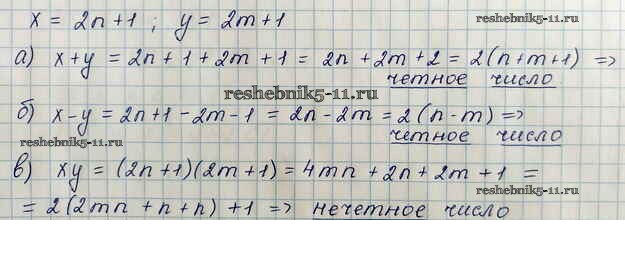 x = 2n+1 ; y = 2m+1
а) x+y = 2n+1+2m+1 = 2n+2m+2 = 2(n+m+1) =>
reshebnik5-11.ru
четное число
reshebnik5-11.ru
б) x-y = 2n+1-2m-1 = 2n-2m = 2(n-m) =>
reshebnik5-11.ru
четное число
в) xy = (2n+1)(2m+1) = 4mn+2n+2m+1 =
reshebnik5-11.ru
= 2(2mn+n+n)+1 => нечетное число